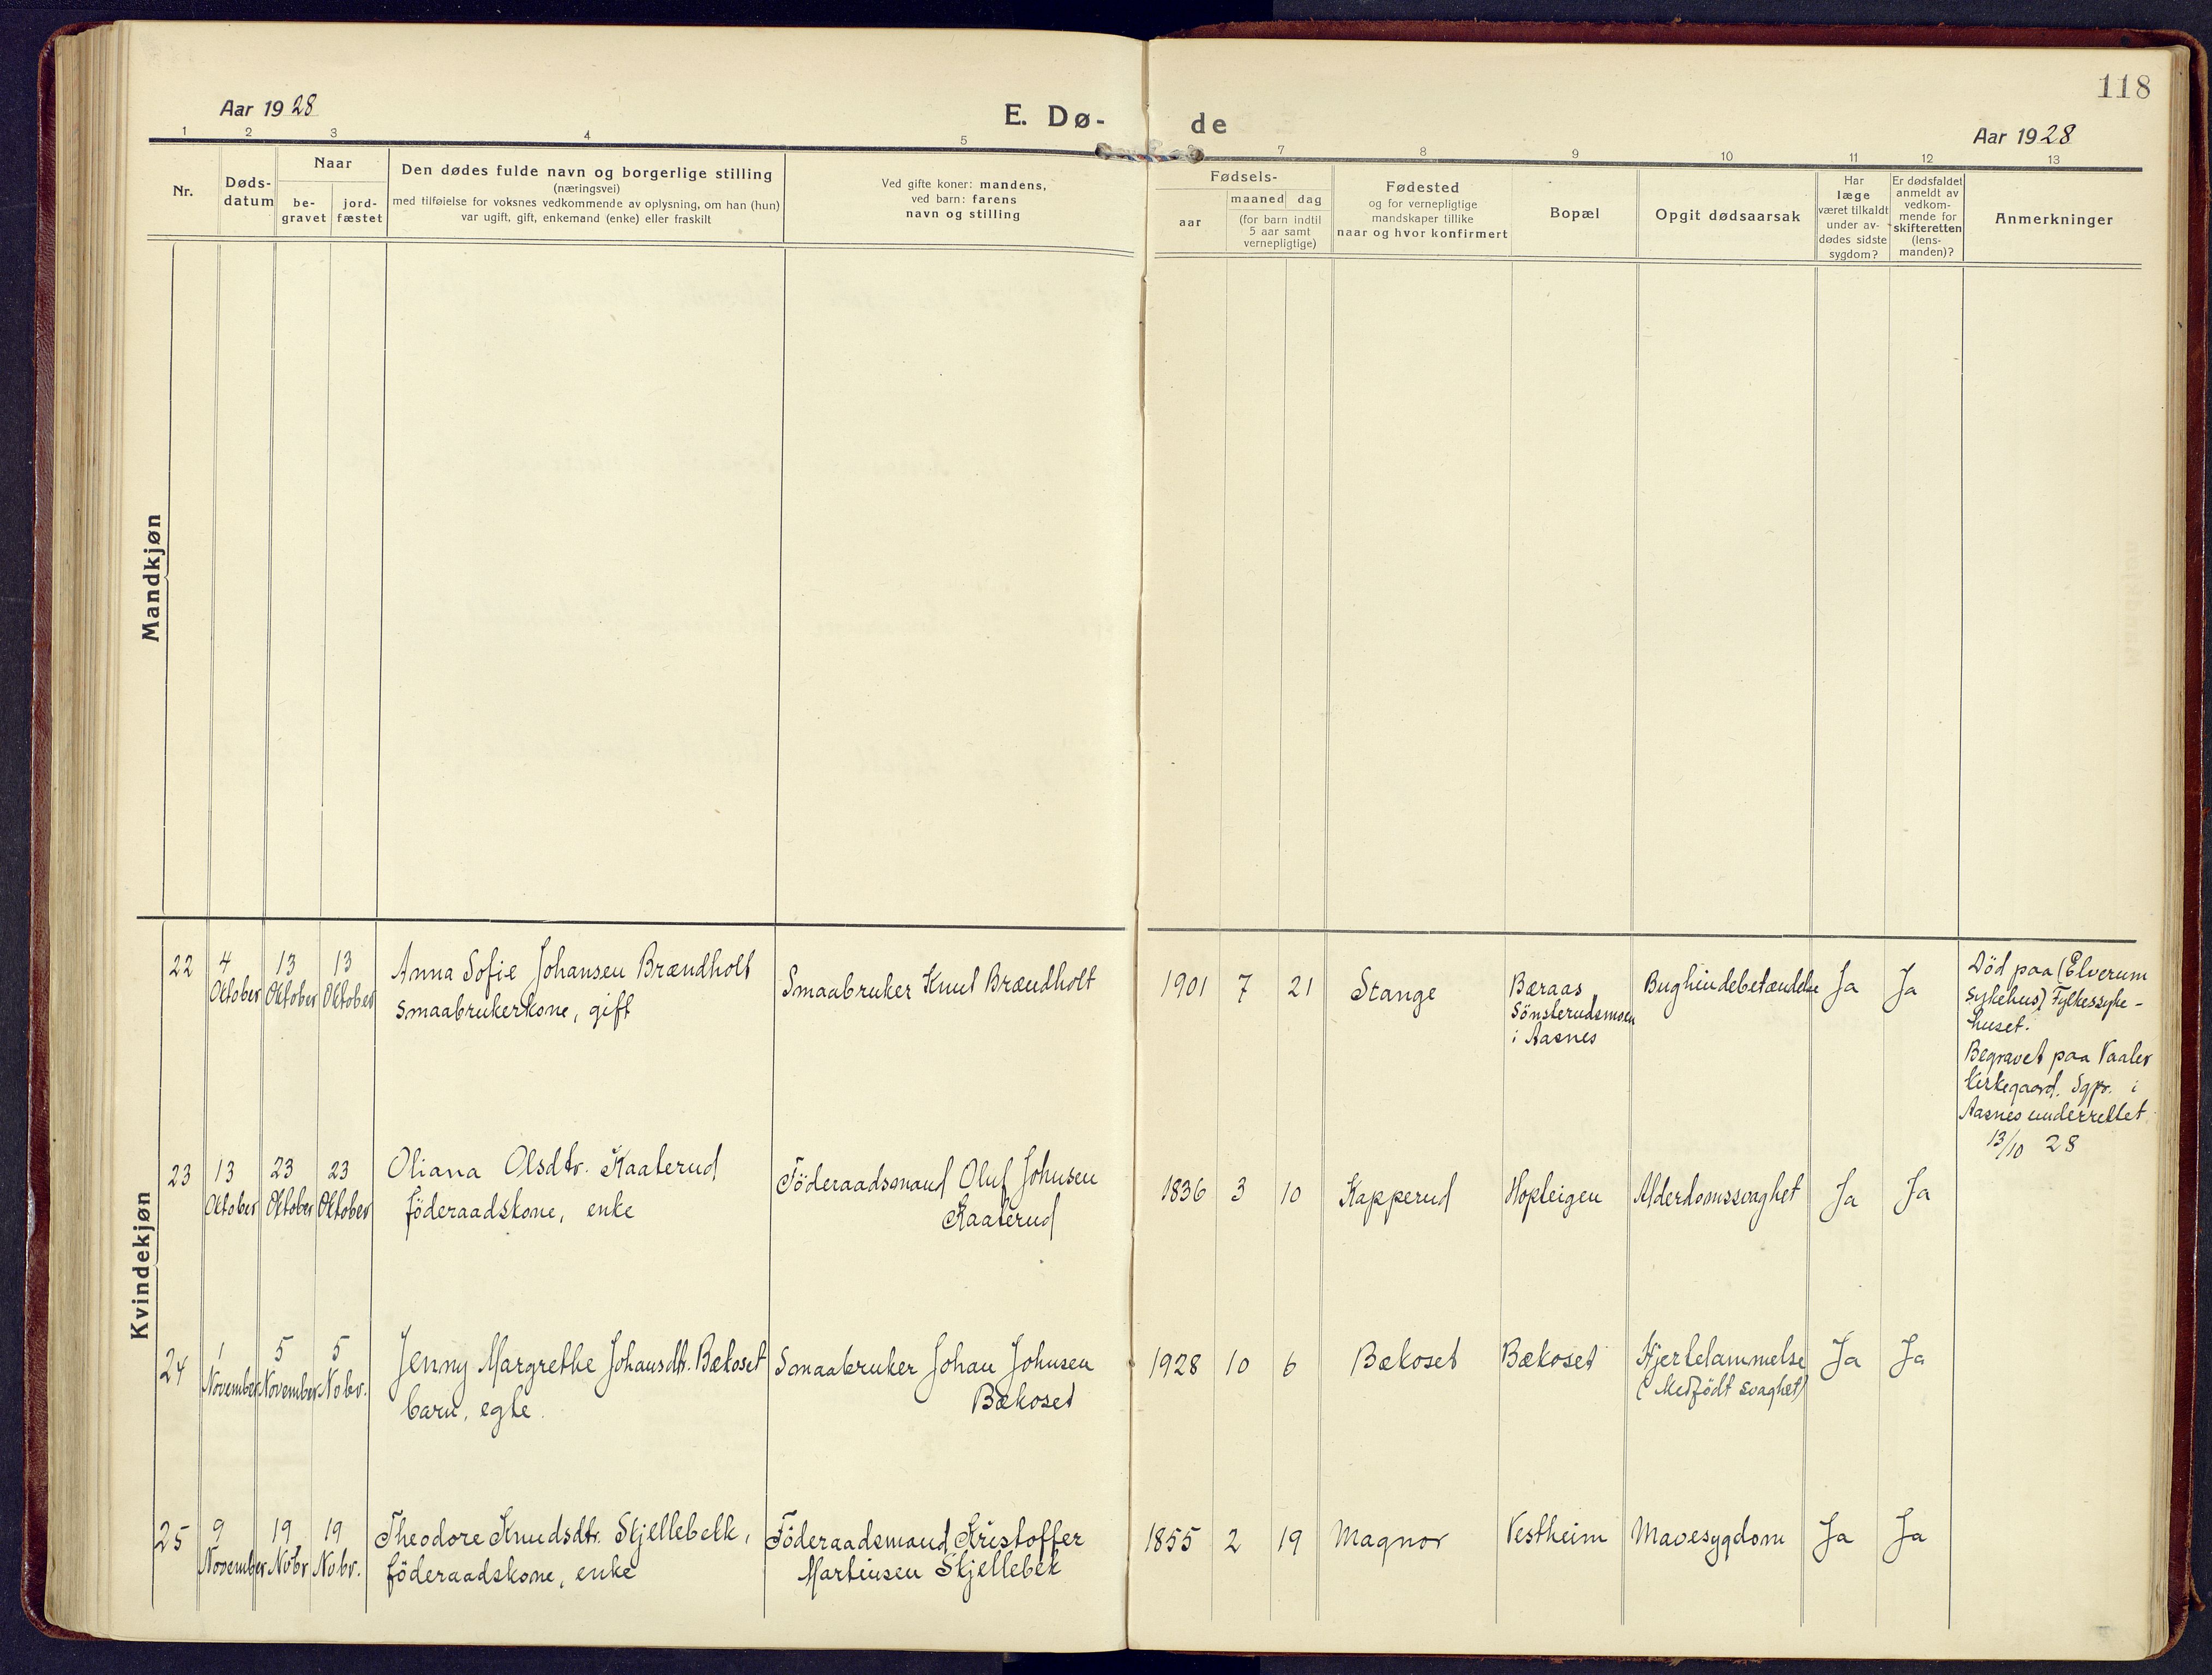 118
Aar 1928
E. Dø-
de
Aar 1928
1 2 3 4 5 7 8 9 10 11 12 13
Nr.
Døds-
datum
Naar
be-
gravet
jord-
fæstet
Den dødes fulde navn og borgerlige stilling
(næringsvei)
med tilføielse for voksnes vedkommende av oplysning, om han (hun)
var ugift, gift, enkemand (enke) eller fraskilt
Ved gifte koner: mandens,
ved barn: farens
navn og stilling
Fødsels-
aar
maaned dag
(for barn indtil
5 aar samt
vernepligtige)
Fødested
og for vernepligtige
mandskaper tillike
naar og hvor konfirmert
Bopæl
Opgit dødsaarsak
Har
læge
været tilkaldt
under av-
dødes sidste
sygdom?
Er dødsfaldet
anmeldt av
vedkom-
mende for
skifteretten
(lens-
manden)?
Anmerkninger
Mandkjøn
Kvindekjøn
22
4
Oktober
13
Oktober
13
Oktober
Anna Sofie Johansen Brændholt
smaabrukerkone, gift
Smaabruker Knut Brændholt
1901 7 21
Stange
Bæraas
Sönsterudsmoen
i Aasnes
Bughindebetændelse
Ja
Ja
Död paa (Elverum
sykehus) Fylkessyke-
huset.
Begravet paa Vaaler
Kirkegaard. Sgpr. i
Aasnes underrettet
13/10 28
23
13
Oktober
23
Oktober
23
Oktober
Oliana Olsdtr. Kaaterud
föderaadskone, enke
Föderaadsmand Oluf Johnsen
Kaaterud
1836 3 10
Kapperud
Hopleigen
Alderdomssvaghet
Ja
Ja
24
1
November
5
November
5
Nobr.
Jenny Margrethe Johansdtr. Bækoset
barn, egte.
Smaabruker Johan Johnsen
Bækoset
1928 10 6
Bækoset
Bækoset
Hjertelammelse
(Medfödt svaghet)
Ja
Ja
25
9
November
19
Nobr
19
Nobr.
Theodore Knudsdtr. Skjellebekk,
föderaadskone, enke
Föderaadsmand Kristoffer
Martinsen Skjellebek
1855 2 19
Magnor
Vestheim
Mavesygdom
Ja
Ja